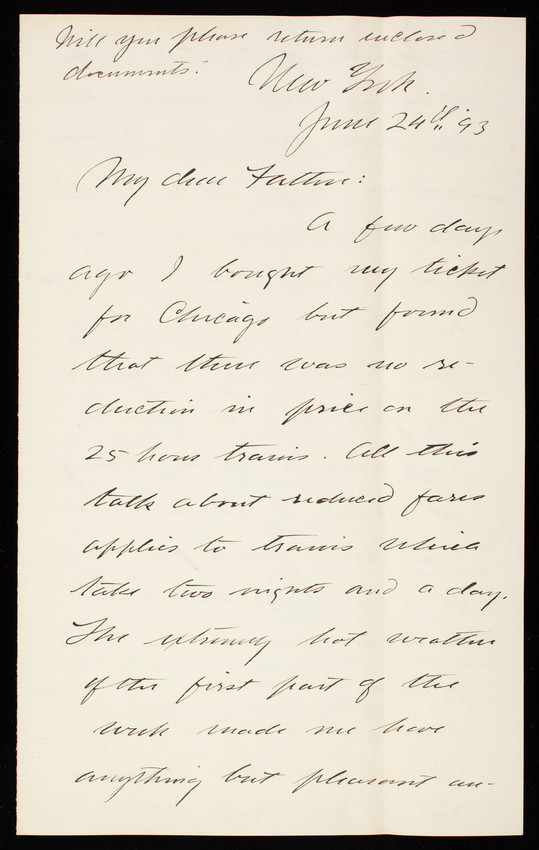 Will you please return enclosed
documents.
New York.
June 24th '93
My dear Father:
A few days
ago I bought my ticket
for Chicago but found
that there was no re-
duction in price on the
25 hour trains. All this
talk about reduced fares
applies to trains which
take two nights and a day.
The extremely hot weather
of the first part of the
week made me have
anything but pleasant an-